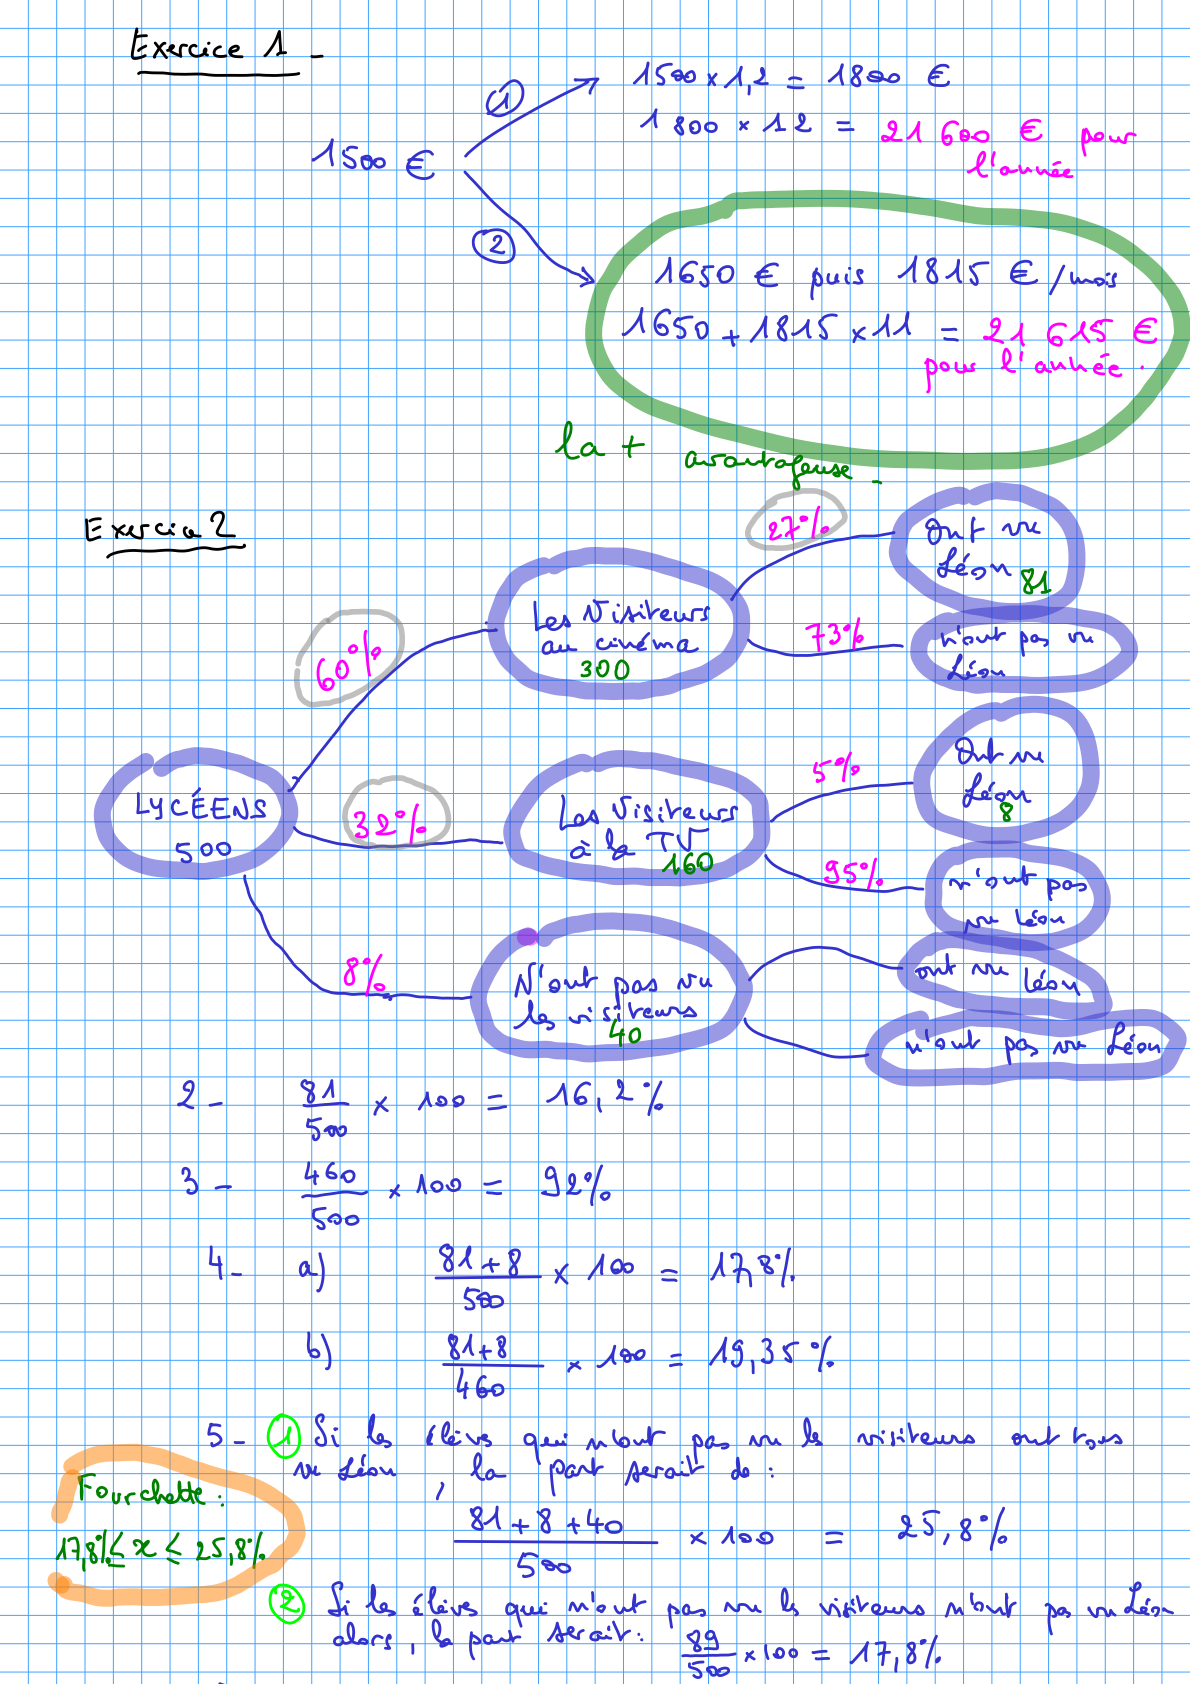 Exercice 1 -
1500 €
①
1500 × 1,2 = 1800 €
1 800 × 12 = 21 600 € pour
l'année
②
1650 € puis 1815 € /mois
1650 + 1815 × 11 = 21 615 €
pour l'année.
la + avantageuse -
Exercice 2
LYCÉENS
500
60%
Les Visiteurs
au cinéma
300
27%
Ont vu
Léon 81
73%
n'ont pas vu
Léon
32%
Les Visiteurs
à la TV
160
5%
Ont vu
Léon
8
95%
n'ont pas
vu Léon
8%
N'ont pas vu
les visiteurs
40
ont vu Léon
n'ont pas vu Léon
2 - 81/500 × 100 = 16,2%
3 - 460/500 × 100 = 92%
4 - a) 81+8/500 × 100 = 17,8%
b) 81+8/460 × 100 = 19,35%
5 - ① Si les élèves qui n'ont pas vu les visiteurs ont tous
vu Léon, la part serait de :
81+8+40/500 × 100 = 25,8%
Fourchette :
17,8% ≤ x ≤ 25,8%
② Si les élèves qui n'ont pas vu les visiteurs n'ont pas vu Léon
alors, la part serait : 89/500 × 100 = 17,8%